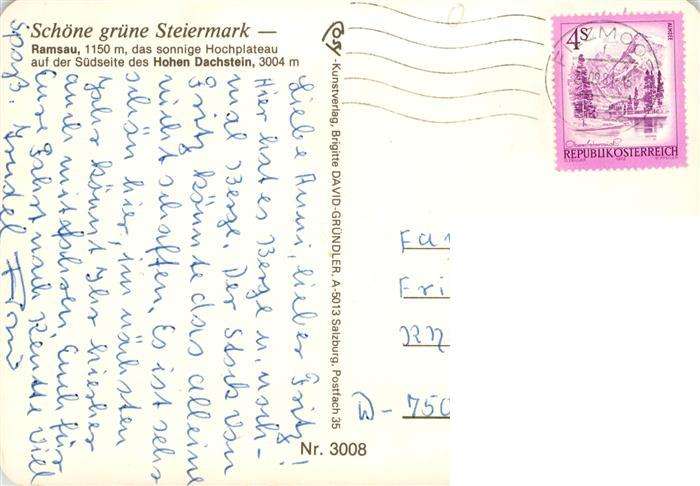 Schöne grüne Steiermark —
Ramsau, 1150 m, das sonnige Hochplateau
auf der Südseite des Hohen Dachstein, 3004 m
Liebe Anni, lieber Fritz!
Hier hat es Berge u. noch-
mal Berge. Der Stock von
Fritz könnte das alleine
nicht schaffen. Es ist sehr
schön hier, im nächsten
Jahr könnt Ihr hierher
auch mitfahren. Euch für
Eure Fahrt nach Reutte viel
Spaß.
-Kunstverlag, Brigitte DAVID-GRÜNDLER, A-5013 Salzburg, Postfach 35
Nr. 3008
4 S
ALMSEE
REPUBLIK ÖSTERREICH
Fam
Fri
D- 750